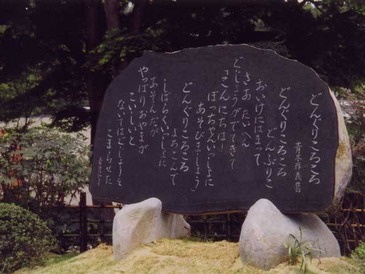 どんぐりころころ
青木存義
どんぐりころころ
どんぶりこ
おいけにはまって
さあ たいへん
どじょうがでてきて
こんにちは
ぼっちゃんいっしょに
あそびましょう
どんぐりころころ
よろこんで
しばらくいっしょに
あそんだが
やっぱりおやまが
こいしいと
ないてはどじょうを
こまらせた